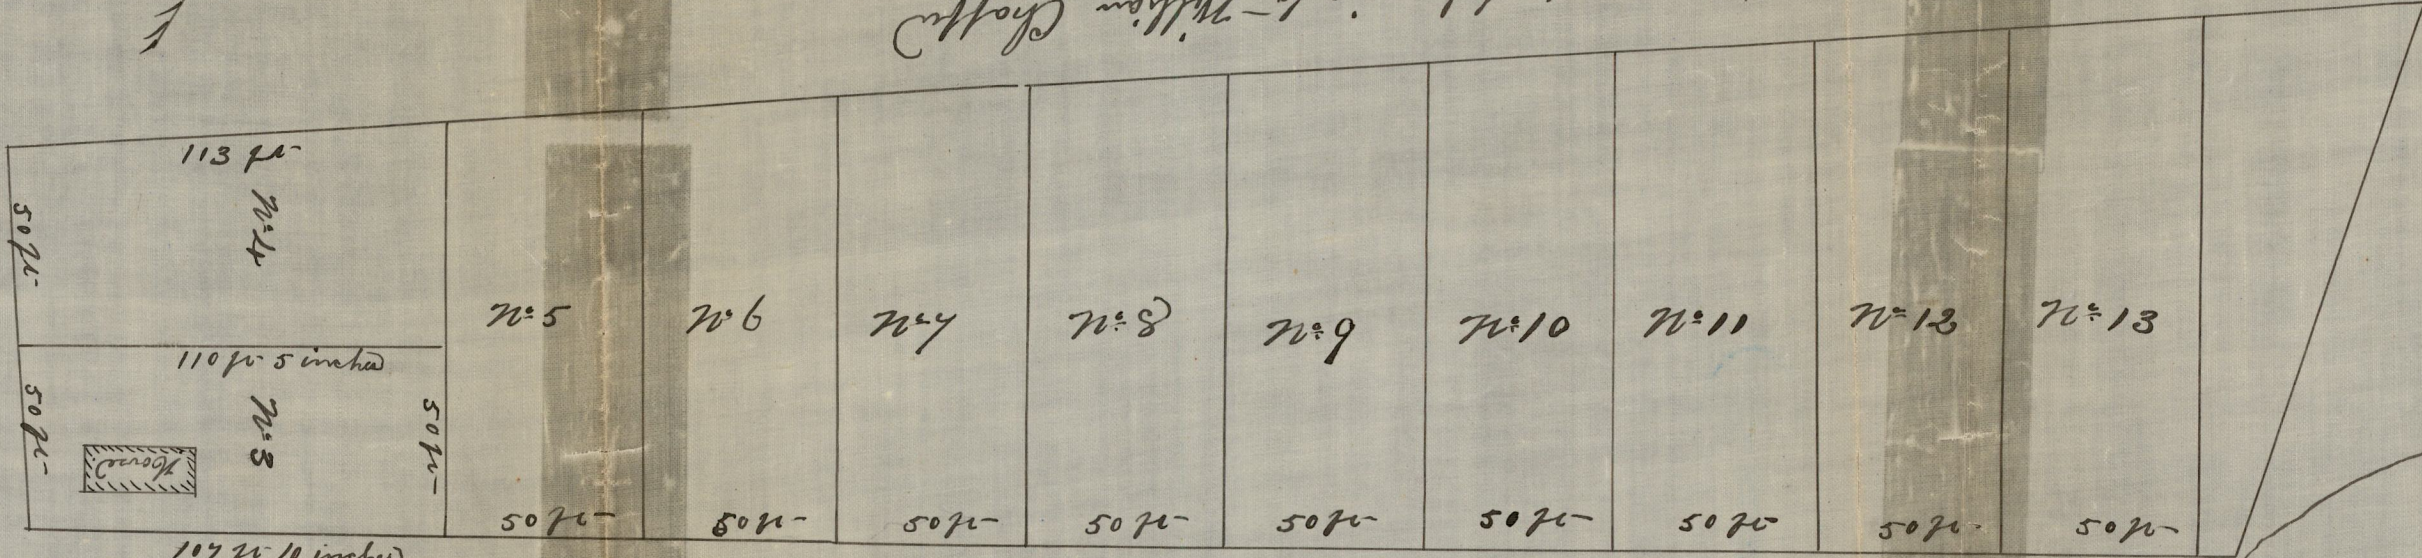 William Chaffee
113 ft
50 ft
No 4
110 ft 5 inches
50 ft
No 3
50 ft
House
107 ft 10 inches
No 5
No 6
No 7
No 8
No 9
No 10
No 11
No 12
No 13
50 ft
50 ft
50 ft
50 ft
50 ft
50 ft
50 ft
50 ft
50 ft